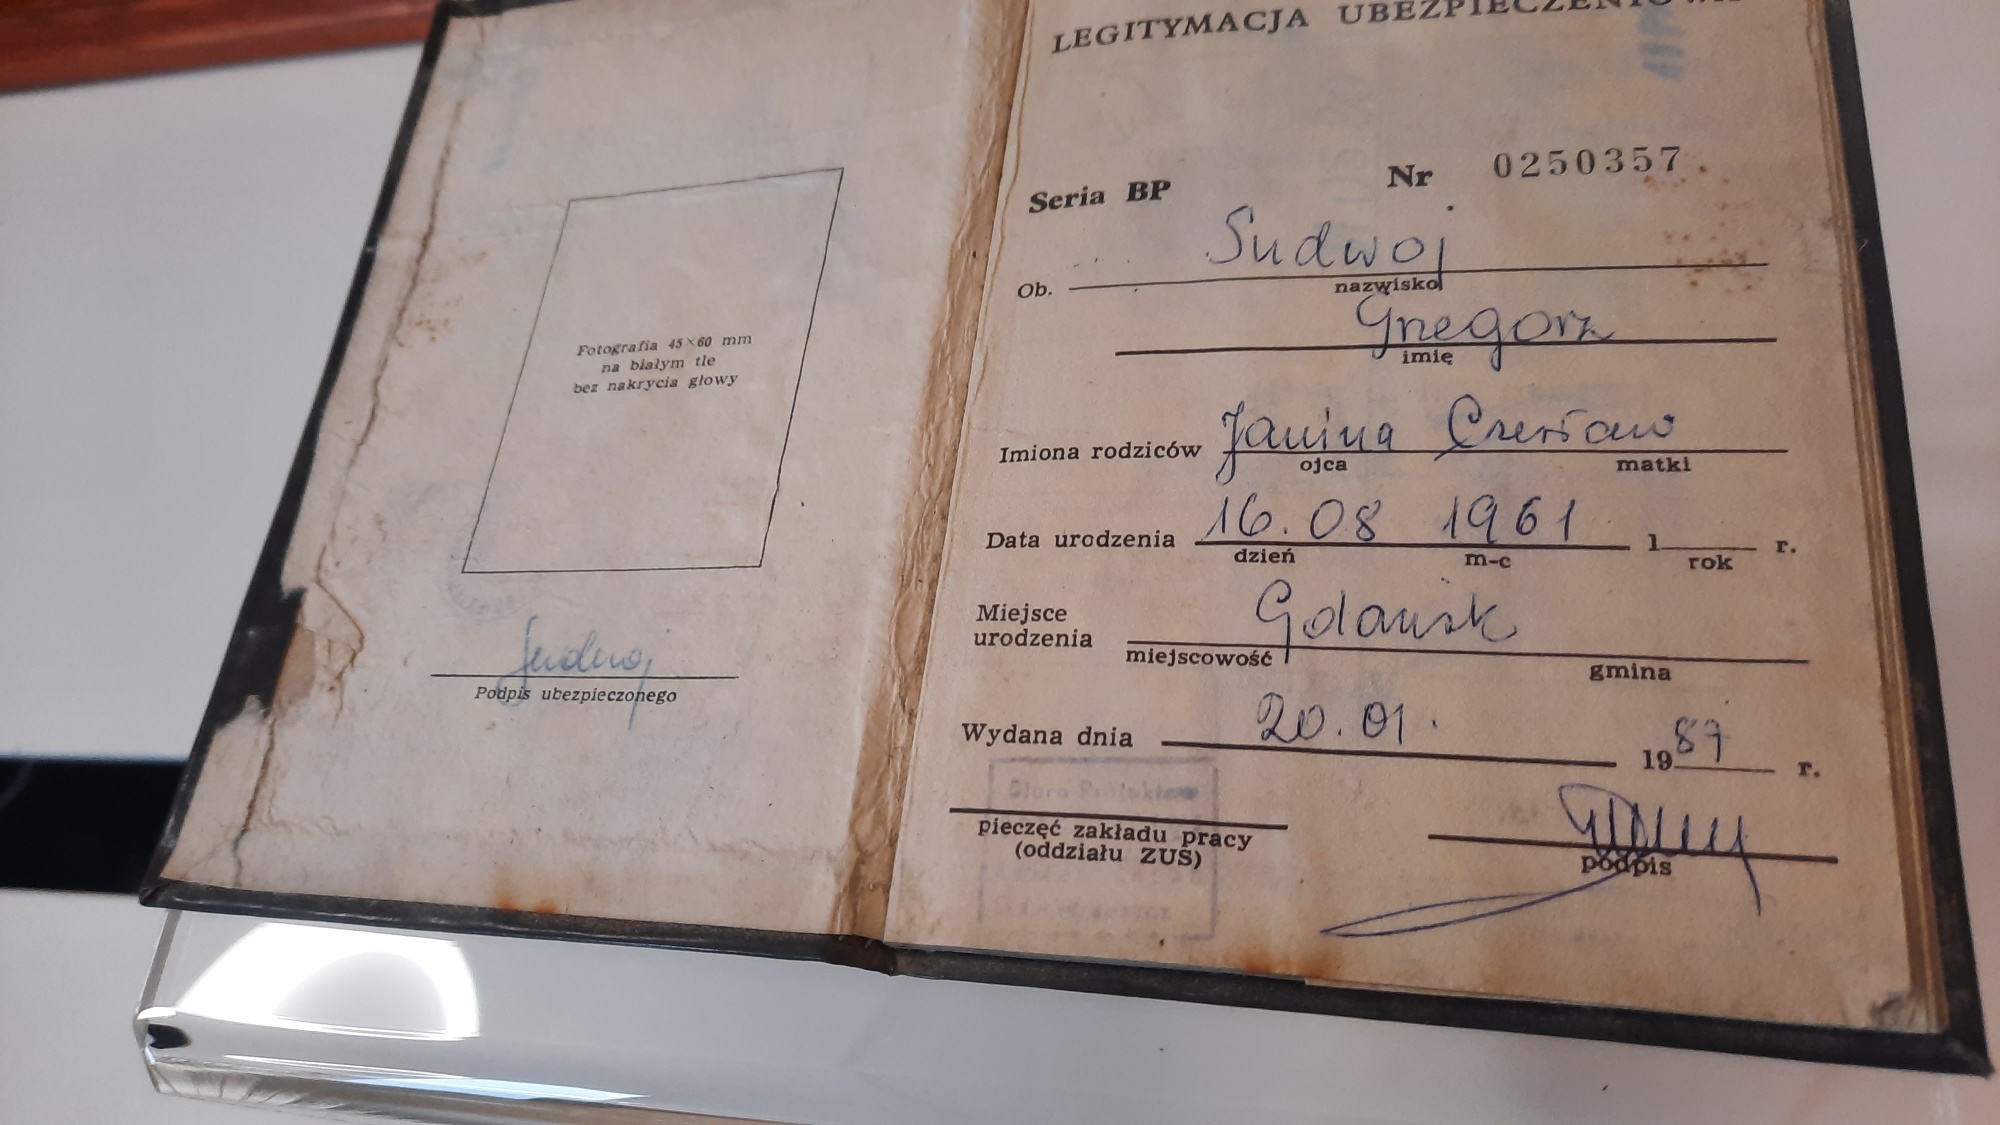 Fotografia 45×60 mm
na białym tle
bez nakrycia głowy
Sudwoj
Podpis ubezpieczonego
LEGITYMACJA UBEZPIECZENIOWA
Seria BP Nr 0250357
Ob. Sudwoj
nazwisko
Grzegorz
imię
Imiona rodziców Janina Czesław
ojca matki
Data urodzenia 16.08 1961 1 r.
dzień m-c rok
Miejsce
urodzenia Gdańsk
miejscowość gmina
Wydana dnia 20.01. 1987 r.
Biuro Projektów
pieczęć zakładu pracy
(oddziału ZUS)
podpis